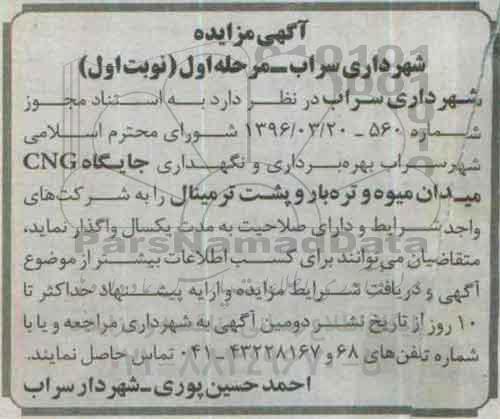 آگهی مزایده
شهرداری سراب ـ مرحله اول (نوبت اول)
شهرداری سراب در نظر دارد به استناد مجوز
شماره ۵۶۰ ـ ۱۳۹۶/۰۳/۲۰ شورای محترم اسلامی
شهر سراب بهره‌برداری و نگهداری جایگاه CNG
میدان میوه و تره‌بار و پشت ترمینال را به شرکت‌های
واجد شرایط و دارای صلاحیت به مدت یکسال واگذار نماید،
متقاضیان می‌توانند برای کسب اطلاعات بیشتر از موضوع
آگهی و دریافت شرایط مزایده و ارایه پیشنهاد حداکثر تا
۱۰ روز از تاریخ نشر دومین آگهی به شهرداری مراجعه و یا با
شماره تلفن‌های ۶۸ و ۴۳۲۲۸۱۶۷-۰۴۱ تماس حاصل نمایند.
احمد حسین‌پوری ـ شهردار سراب
ParsNamadData